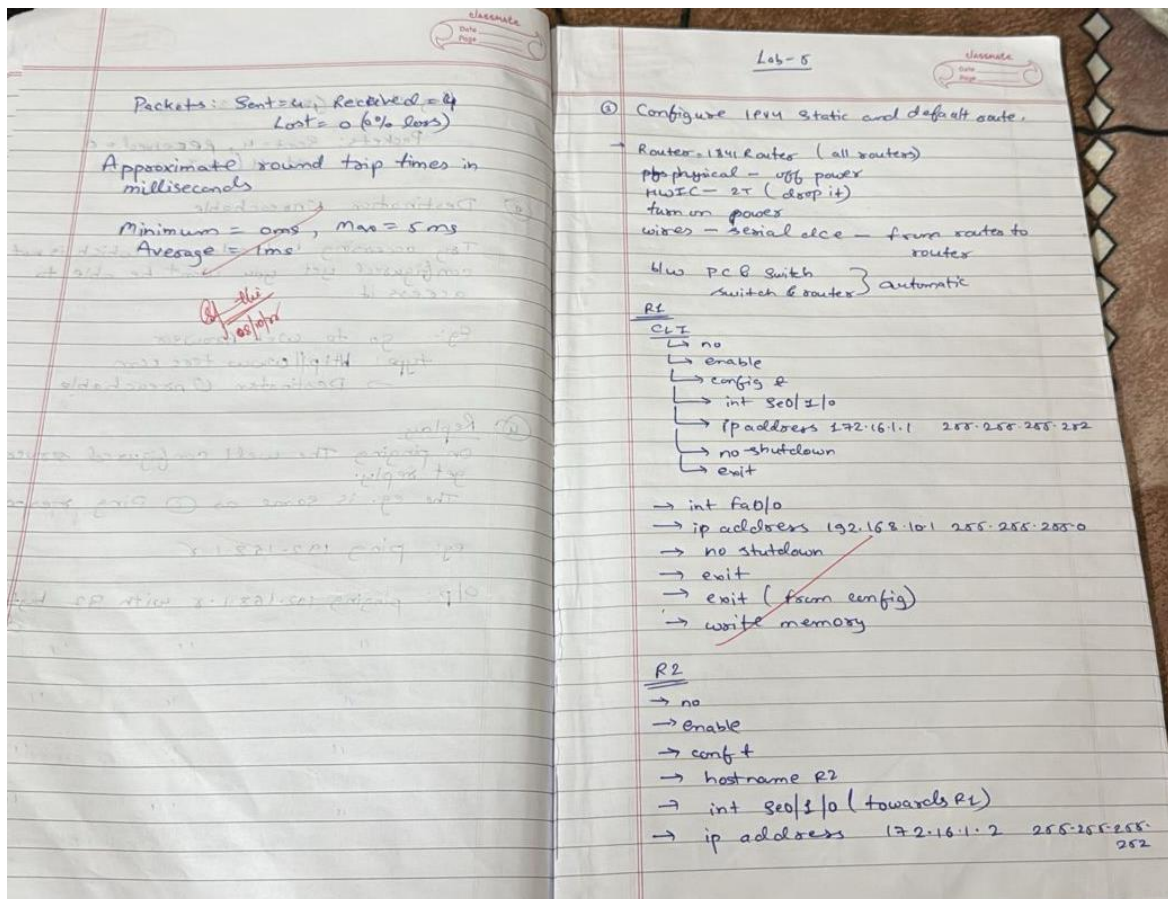 classmate
Date
Page
Packets: Sent=4, Received=4
Lost= 0 (0% loss)
Approximate round trip times in
milliseconds
Minimum = 0ms, Max = 5ms
Average = 1ms
08/10/
Lab-5
classmate
Date
Page
Configure IPv4 static and default route.
→ Router - 1841 Router (all routers)
physical - off power
HWIC - 2T (drop it)
turn on power
wires - serial dce - from router to
router
b/w PC & Switch
switch & router } automatic
R1
CLI
↳ no
↳ enable
↳ config t
↳ int Se0/1/0
↳ ip address 172.16.1.1 255.255.255.252
↳ no shutdown
↳ exit
→ int fa0/0
→ ip address 192.168.10.1 255.255.255.0
→ no stutdown
→ exit
→ exit (from config)
→ write memory
R2
→ no
→ enable
→ conf t
→ hostname R2
→ int Se0/1/0 (towards R1)
→ ip address 172.16.1.2 255.255.255.
252